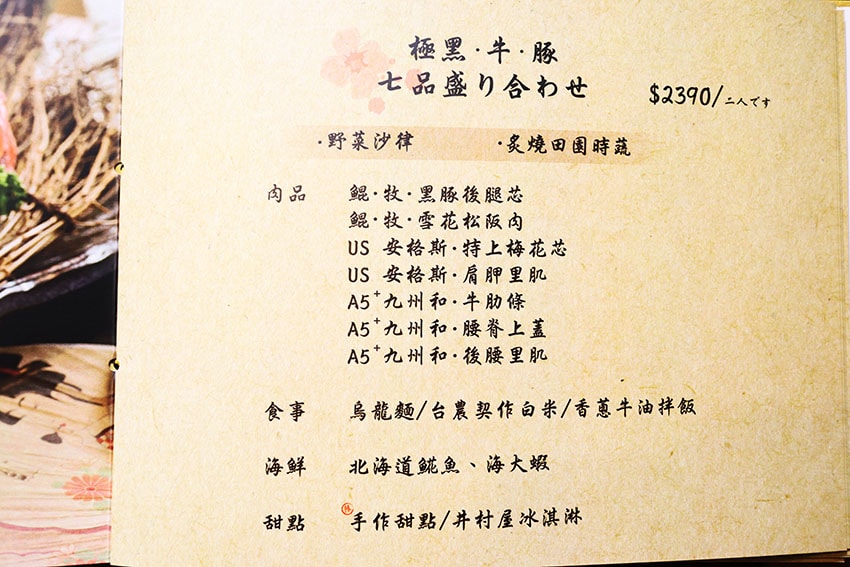 極黑·牛·豚
七品盛り合わせ
$2390/二人です
·野菜沙律 ·炙燒田園時蔬
肉品 鯤·牧·黑豚後腿芯
鯤·牧·雪花松阪肉
US 安格斯·特上梅花芯
US 安格斯·肩胛里肌
A5+九州和·牛肋條
A5+九州和·腰脊上蓋
A5+九州和·後腰里肌
食事 烏龍麵/台農契作白米/香蔥牛油拌飯
海鮮 北海道鯱魚、海大蝦
甜點 手作甜點/井村屋冰淇淋